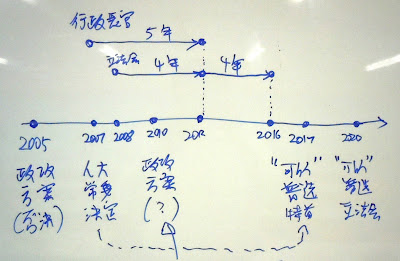 行政長官
5年
立法会
4年
4年
2005
2007
2008
2012
2016
2017
2020
政改
方案
(否決)
人大
常委
決定
政改
方案
(?)
"可以"
普选
特首
"可以"
普选
立法会